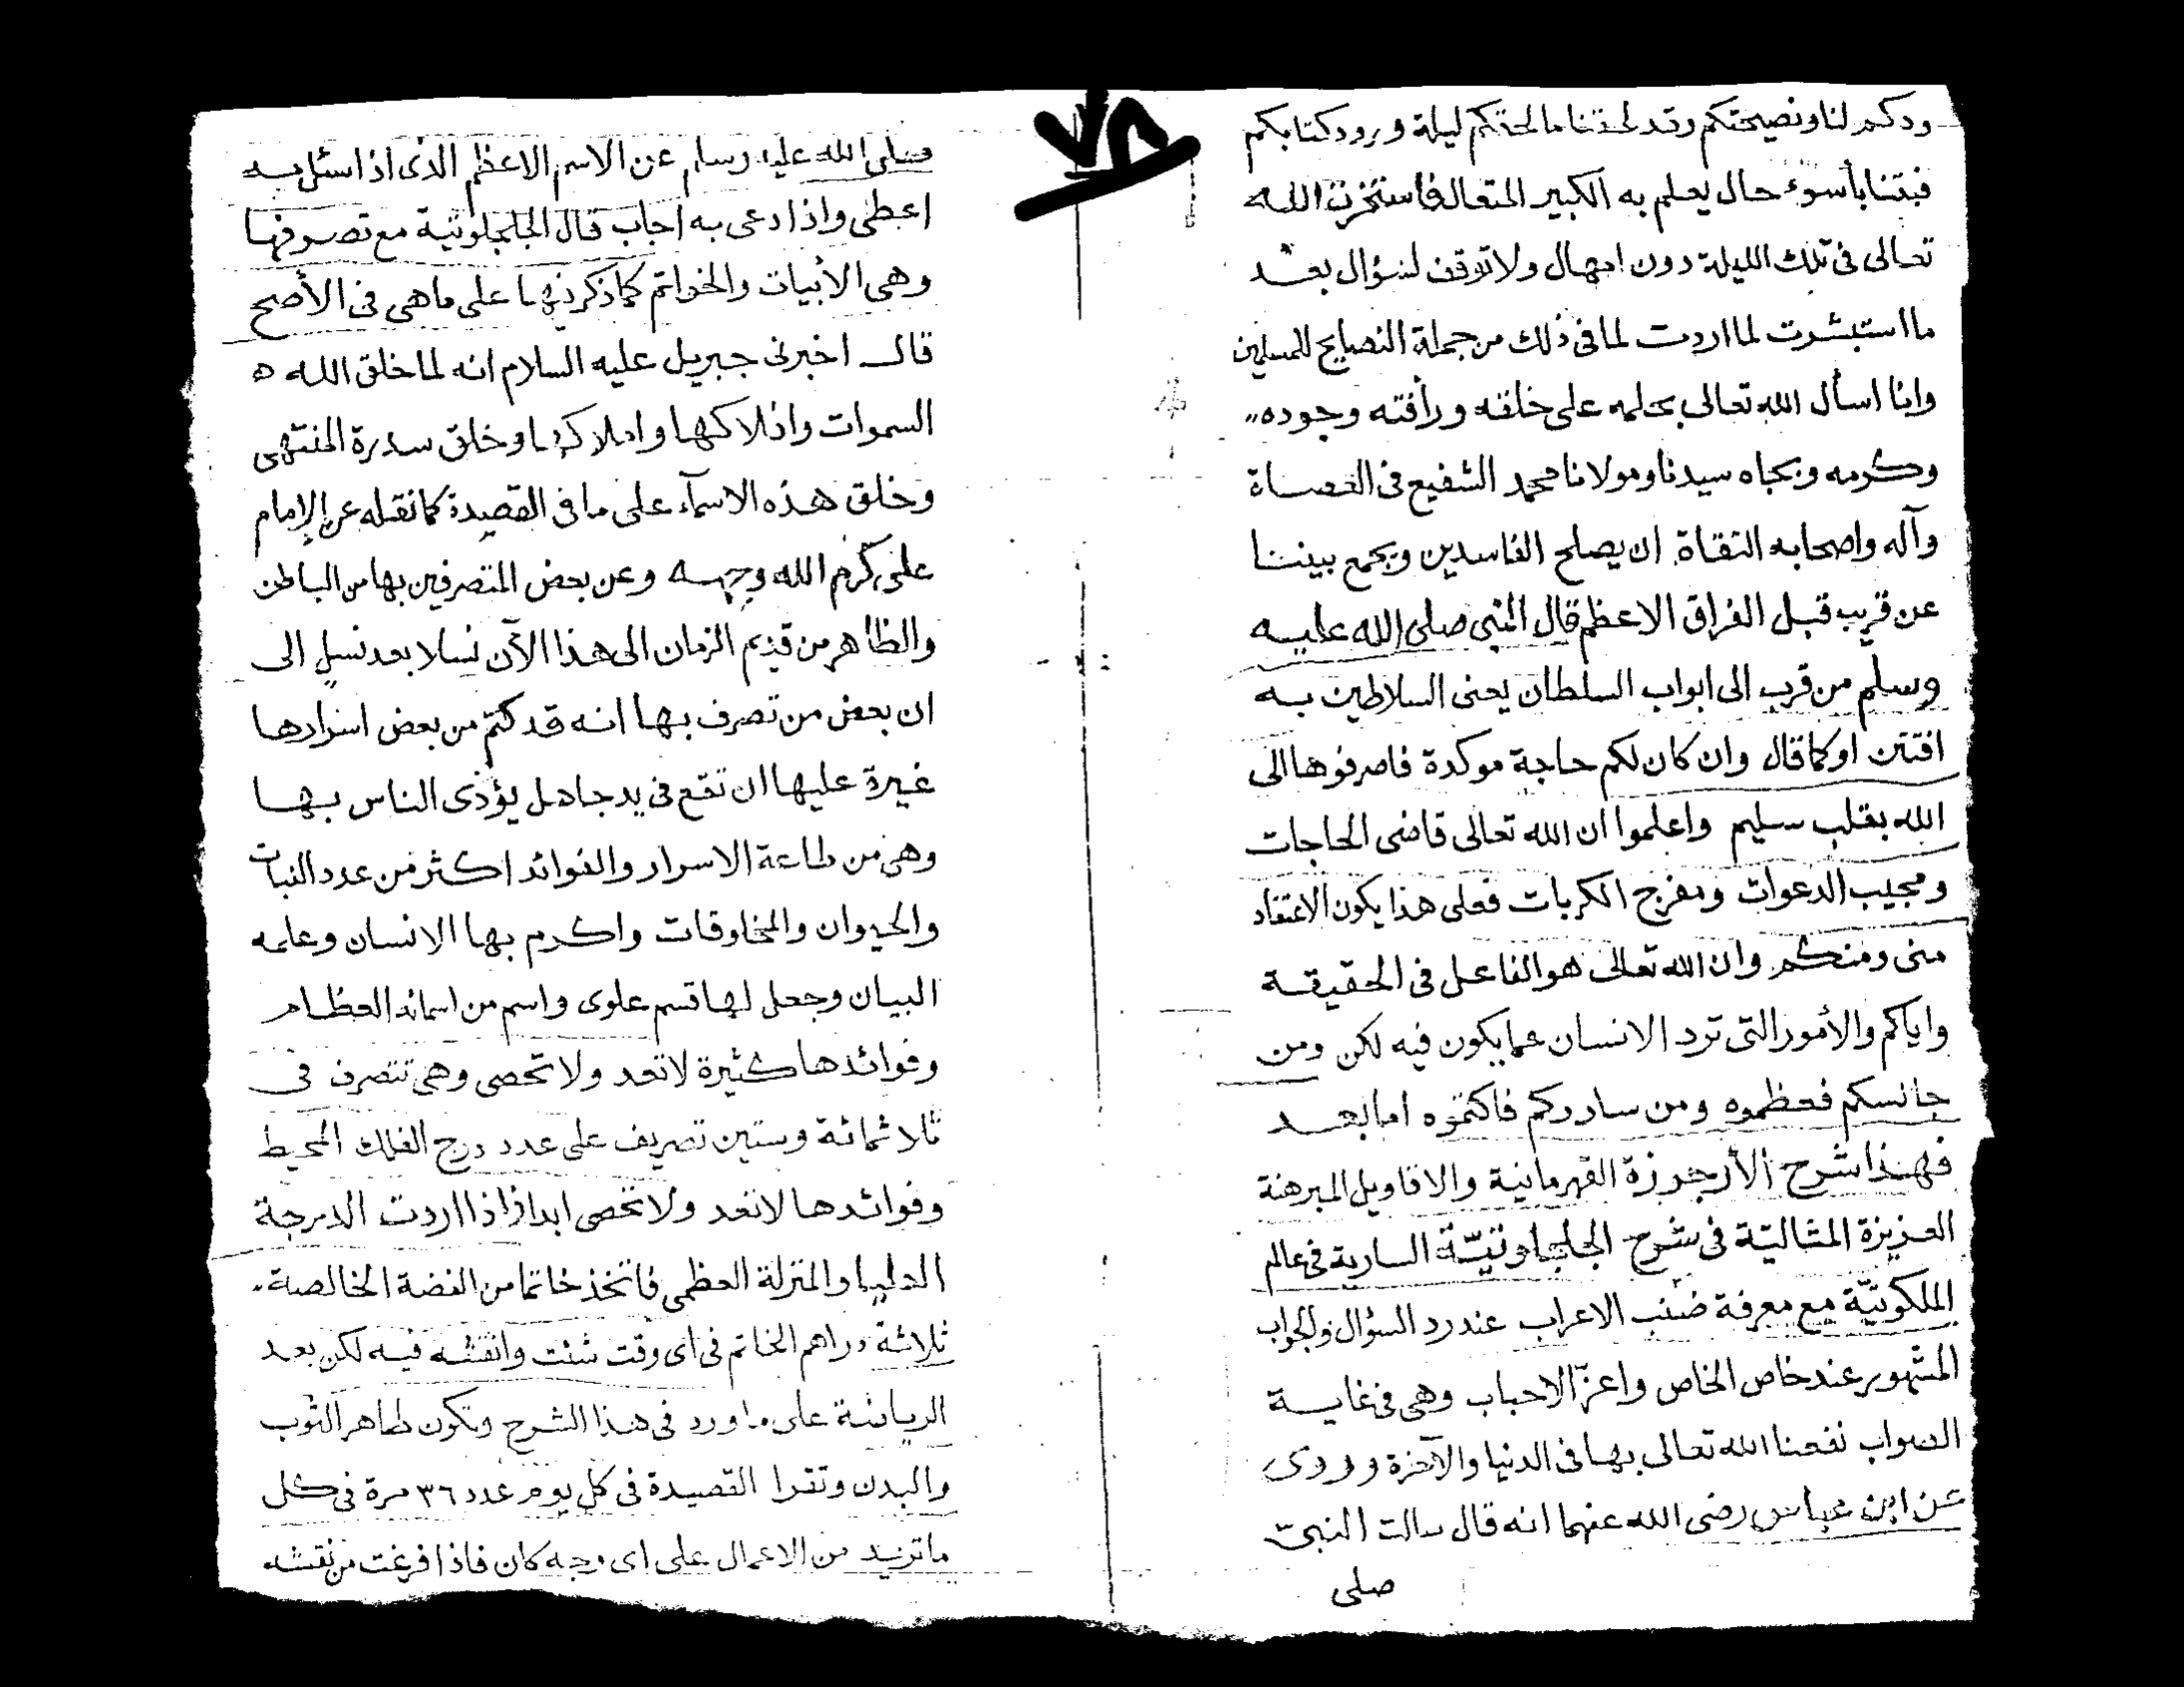 ودكم لنا ونصيحتكم وقد لحقنا ما لحقكم ليلة ورود كتابكم
فبتنا باسوء حال يعلم به الكبير المتعال فاستخرت الله
تعالى فى تلك الليلة دون امهال ولا توقف لسؤال بعد
ما استبشرت لما اردت لما فى ذلك من جملة النصايح للمسلمين
وانا اسأل الله تعالى بحلمه على خلقه ورأفته وجوده
وكرمه وبجاه سيدنا ومولانا محمد الشفيع فى العصاة
وآله واصحابه التقاة ان يصلح الفاسدين ويجمع بيننا
عن قريب قبل الفراق الاعظم قال النبى صلى الله عليه
وسلم من قرب الى ابواب السلطان يعنى السلاطين به
افتتن او كما قال وان كان لكم حاجة موكدة فاصرفوها الى
الله بقلب سليم واعلموا ان الله تعالى قاضى الحاجات
ومجيب الدعوات ومفرج الكربات فعلى هذا يكون الاعتقاد
منى ومنكم وان الله تعالى هو الفاعل فى الحقيقة
واياكم والأمور التى ترد الانسان عما يكون فيه لكن ومن
جانسكم فعظموه ومن سارركم فاكتموه اما بعد
فهذا شرح الأرجوزة القهرمانية والاقاويل المبرهنة
العزيزة المثاليّة فى شرح الجلجلوتيّة السارية فى عالم
الملكوتيّة مع معرفة الاعراب عند رد السؤال والجواب
المشهور عند خاص الخاص واعزّ الاحباب وهى فى غاية
الصواب نفعنا الله تعالى بها فى الدنيا والآخرة وروى
عن ابن عباس رضى الله عنهما انه قال سالت النبى
صلى
صلى الله عليه وسلم عن الاسم الاعظم الذى اذا سئل به
اعطى واذا دعى به اجاب قال الجلجلوتية مع تصوفها
وهى الأبيات والخواتم كما ذكرنها على ماهى فى الأصح
قال اخبرنى جبريل عليه السلام انه لما خلق الله ه
السموات وافلاكها واملاكها وخلق سدرة المنتهى
وخلق هذه الاسمآء على ما فى القصيدة كما نقله عن الإمام
على كرم الله وجهه وعن بعض المتصرفين بها من الباطن
والظاهر من قديم الزمان الى هذا الآن نسلا بعد نسل الى
ان بعض من تصرف بها انه قد كتم من بعض اسرارها
غيرة عليها ان تقع فى يد جاهل يؤذى الناس بها
وهى من طاعة الاسرار والفوائد اكثر من عدد النبات
والحيوان والمخلوقات واكرم بها الانسان وعلمه
البيان وجعل لها قسم علوى واسم من اسمائه العظام
وفوائدها كثيرة لاتعد ولا تحصى وهى تتصرف فى
ثلاثمائة وستين تصريف على عدد درج الفلك المحيط
وفوائدها لاتعد ولاتحصى ابدا فاذا اردت الدرجة
العليا والمنزلة العظمى فاتخذ خاتما من الفضة الخالصة
ثلاثة دراهم الخاتم فى اى وقت شئت وانقشه فيه لكن بعد
الرياضة على ما ورد فى هذا الشرح وتكون طاهر الثوب
والبدن وتقرا القصيدة فى كل يوم عدد ٣٦ مرة فى كل
ما تريد من الاعمال على اى وجه كان فاذا فرغت من نقشه